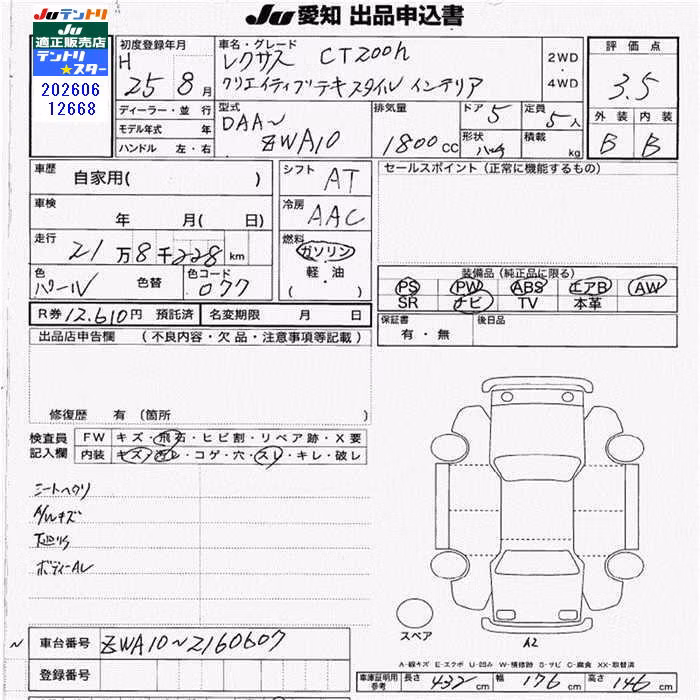 Juテントリ
Ju
適正販売店
テントリ
★スター
202606
12668
Ju 愛知 出品申込書
初度登録年月
H 25 8月
車名・グレード
レクサス CT200h
クリエイティブテキスタイル インテリア
2WD
・
4WD
評価点
3.5
外装 内装
B B
ディーラー・並行
モデル年式 年
ハンドル 左・右
型式
DAA〜
ZWA10
排気量
1800cc
ドア 5
定員 5人
形状 ハッチ
積載 kg
車歴
自家用( )
車検
年 月( 日)
走行
21万8千228km
色
パール
色替
色コード
077
シフト
AT
冷房
AAC
燃料
ガソリン
軽・油
( )
セールスポイント(正常に機能するもの)
装備品(純正品に限る)
PS PW ABS エアB AW
SR ナビ TV 本革
R券 12,610円 預託済 名変期限 月 日
保証書
有・無
後日品
出品店申告欄 (不良内容・欠品・注意事項等記載)
修復歴 有(箇所 )
検査員
記入欄
FW キズ・飛石・ヒビ割・リペア跡・X要
内装 キズ・汚レ・コゲ・穴・スレ・キレ・破レ
シートヘタリ
A/Wキズ
下廻りS
ボディーAU
スペア
A2
A-線キズ E-エクボ U-凹み W-補修跡 S-サビ C-腐食 XX-取替済
〜
車台番号 ZWA10〜2160607
登録番号
車庫証明用
参考
長さ 432cm 幅 176cm 高さ 146cm